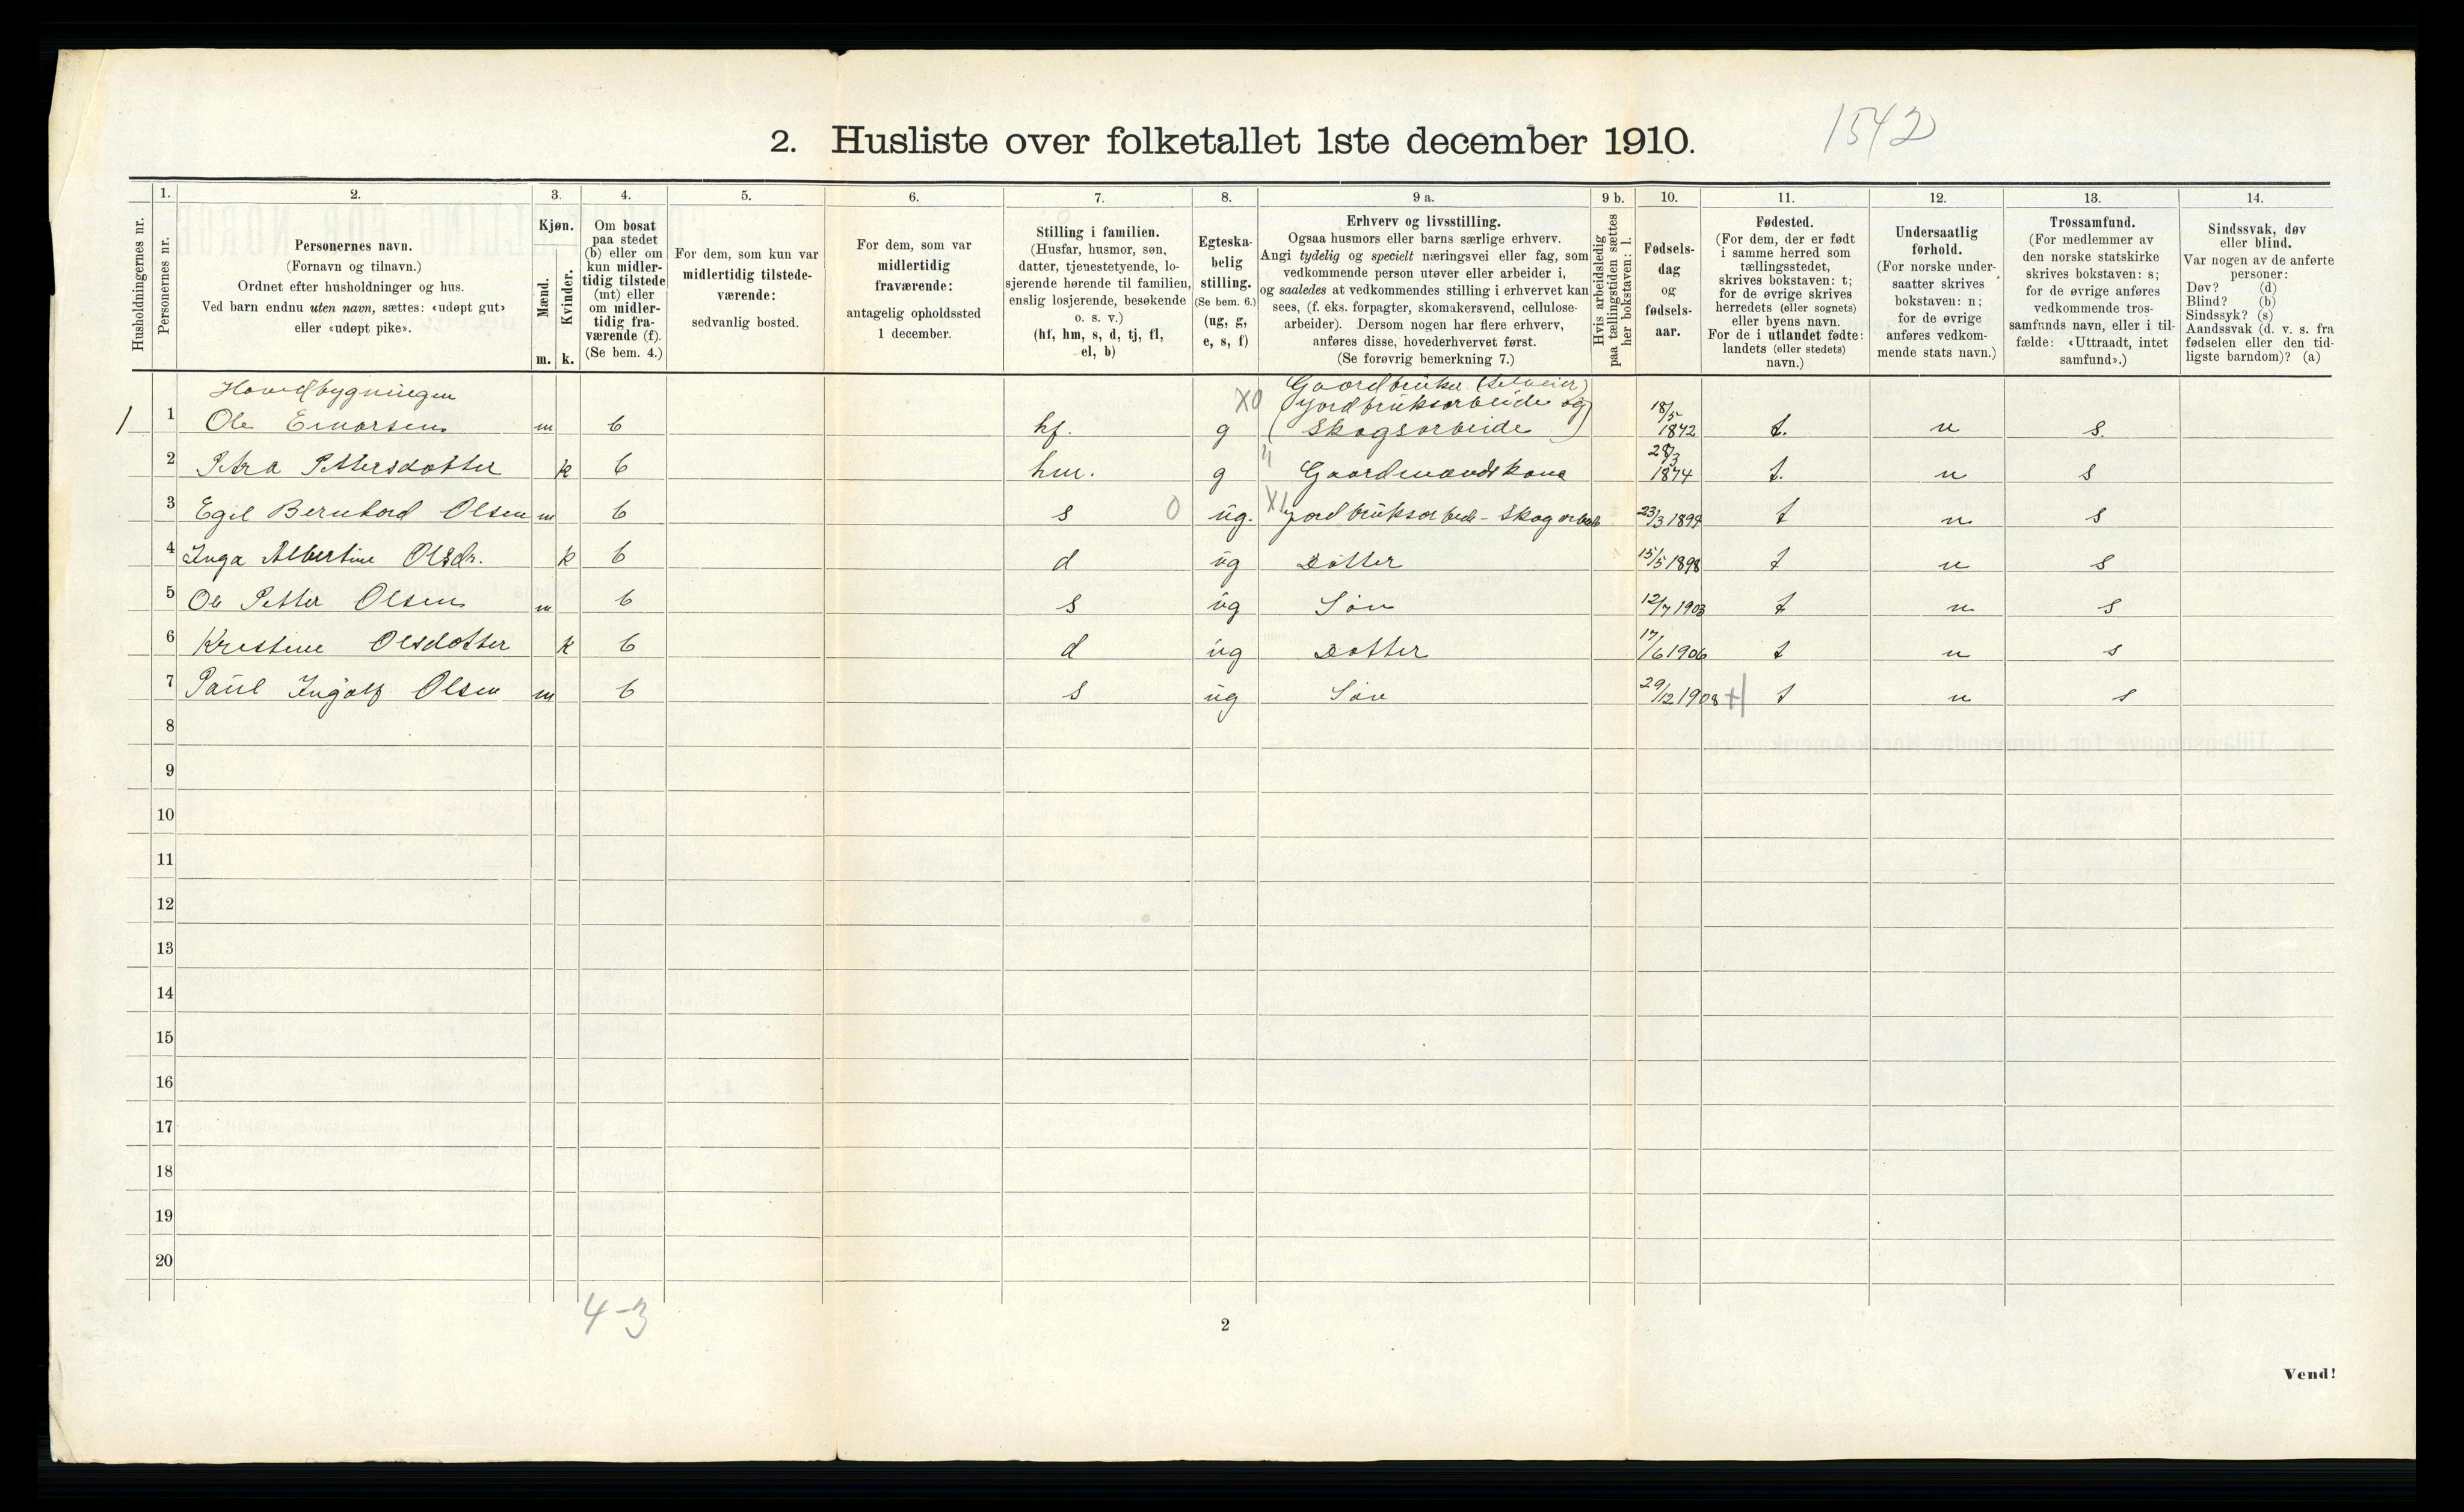 2. Husliste over folketallet 1ste december 1910.
1542
Husholdningernes nr.
1.
Personernes nr.
2.
Personernes navn.
(Fornavn og tilnavn.)
Ordnet efter husholdninger og hus.
Ved barn endnu uten navn, sættes: «udøpt gut»
eller «udøpt pike».
3.
Kjøn.
Mænd.
Kvinder.
m. k.
4.
Om bosat
paa stedet
(b) eller om
kun midler-
tidig tilstede
(mt) eller
om midler-
tidig fra-
værende (f).
(Se bem. 4.)
5.
For dem, som kun var
midlertidig tilstede-
værende:
sedvanlig bosted.
6.
For dem, som var
midlertidig
fraværende:
antagelig opholdssted
1 december.
7.
Stilling i familien.
(Husfar, husmor, søn,
datter, tjenestetyende, lo-
sjerende hørende til familien,
enslig losjerende, besøkende
o. s. v.)
(hf, hm, s, d, tj, fl,
el, b)
8.
Egteska-
belig
stilling.
(Se bem. 6.)
(ug, g,
e, s, f)
9 a.
Erhverv og livsstilling.
Ogsaa husmors eller barns særlige erhverv.
Angi tydelig og specielt næringsvei eller fag, som
vedkommende person utøver eller arbeider i,
og saaledes at vedkommendes stilling i erhvervet kan
sees, (f. eks. forpagter, skomakersvend, cellulose-
arbeider). Dersom nogen har flere erhverv,
anføres disse, hovederhvervet først.
(Se forøvrig bemerkning 7.)
9 b.
Hvis arbeidsledig
paa tællingstiden sættes
her bokstaven: l.
10.
Fødsels-
dag
og
fødsels-
aar.
11.
Fødested.
(For dem, der er født
i samme herred som
tællingsstedet,
skrives bokstaven: t;
for de øvrige skrives
herredets (eller sognets)
eller byens navn.
For de i utlandet fødte:
landets (eller stedets)
navn.)
12.
Undersaatlig
forhold.
(For norske under-
saatter skrives
bokstaven: n;
for de øvrige
anføres vedkom-
mende stats navn.)
13.
Trossamfund.
(For medlemmer av
den norske statskirke
skrives bokstaven: s;
for de øvrige anføres
vedkommende tros-
samfunds navn, eller i til-
fælde: «Uttraadt, intet
samfund».)
14.
Sindssvak, døv
eller blind.
Var nogen av de anførte
personer:
Døv? (d)
Blind? (b)
Sindssyk? (s)
Aandssvak (d. v. s. fra
fødselen eller den tid-
ligste barndom)? (a)
Hovedbygningen
Gaardbruker (Selveier)
X0 (Jordbruksarbeide og
1 1 Ole Einarsen m b hf. g Skogsarbeide) 18/5 1842 t. n s.
2 Petra Pettersdatter k b hm. g " Gaardmandskone 28/3 1874 t. n s
3 Egil Bernhard Olsen m b s 0 ug. X1 Jordbruksarbeide - Skogarbeide 23/3 1894 t n s
4 Inga Albertine Olsdr. k b d ug Datter 15/5 1898 t n s
5 Ole Petter Olsen m b s ug Søn 12/7 1903 t n s
6 Kristine Olsdatter k b d ug Datter 17/6 1906 t n s
7 Paul Ingolf Olsen m b s ug Søn 29/12 1908 t n s
8
9
10
11
12
13
14
15
16
17
18
19
20
4-3
2
Vend!